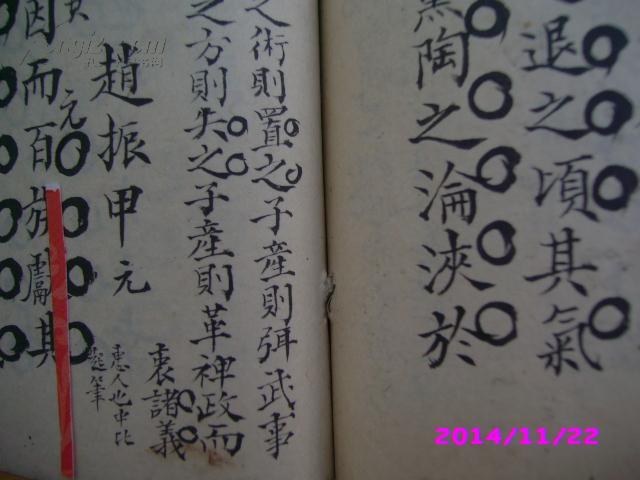 退之頃其氣
熏陶之淪浹於
之術則置之子產則弭武事
之方則失之子產則革神政而
裹諸義
惠人也中比
題筆
趙振甲元
元
因而百族獻其
2014/11/22